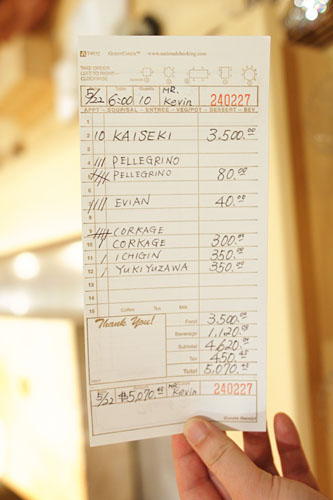 GUEST CHECK™ www.nationalchecking.com
TAKE ORDER
LEFT TO RIGHT
CLOCKWISE
5/22 6:00 10 MR. Kevin 240227
APPT - SOUP/SAL - ENTREE - VEG/POT - DESSERT - BEV
1
2 10 KAISEKI 3,500.00
3
4 |||| PELLEGRINO
5 PELLEGRINO 80.00
6
7 |||| EVIAN 40.00
8
9 CORKAGE
10 / CORKAGE 300.00
11 / ICHIGIN 350.00
12 / YUKIYUZAWA 350.00
13
14
15
Coffee Tea Milk
Thank You! Food 3,500.00
Beverage 1,120.00
Subtotal 4,620.00
Tax 450.45
Total 5,070.45
5/22 $5,070.45 MR. Kevin 240227
Guests Receipt